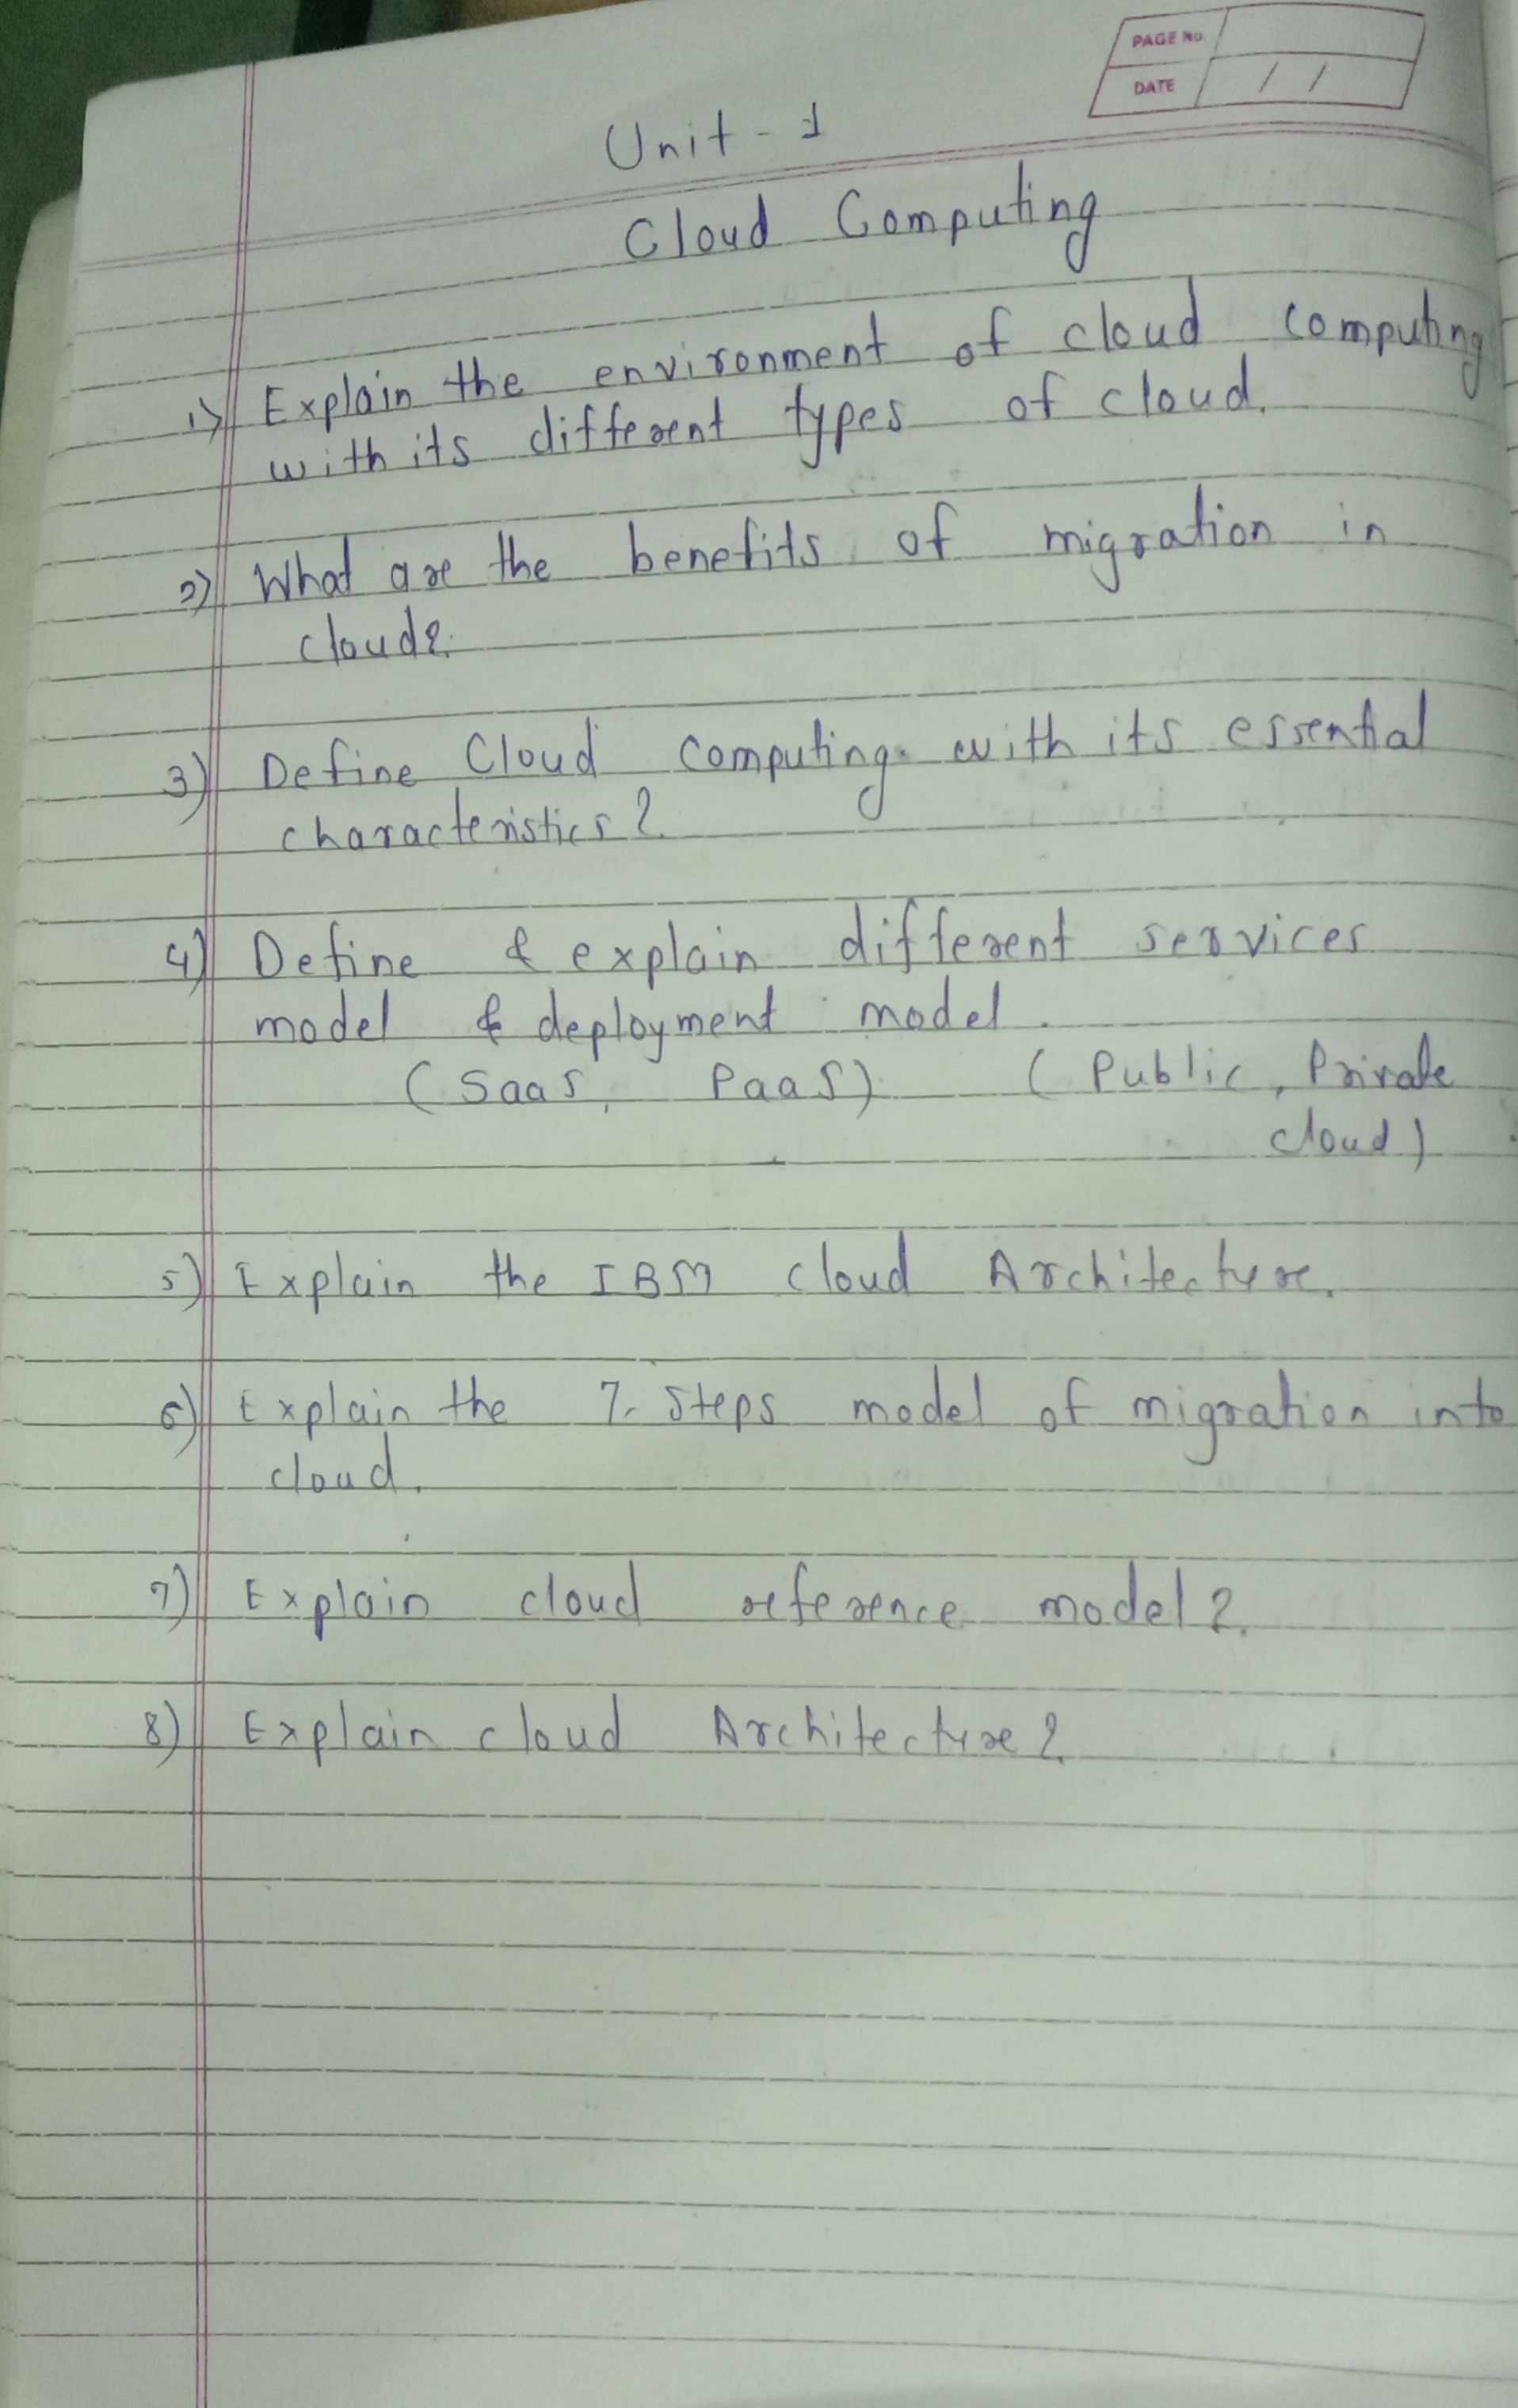 PAGE NO.
DATE / /
Unit - 1
Cloud Computing
1) Explain the environment of cloud computing
with its different types of cloud.
2) What are the benefits of migration in
cloud?
3) Define Cloud computing with its essential
characteristics?
4) Define & explain different services
model & deployment model.
(SaaS, PaaS) (Public, Private
cloud)
5) Explain the IBM cloud Architecture.
6) Explain the 7-Steps model of migration into
cloud.
7) Explain cloud reference model?
8) Explain cloud Architecture?